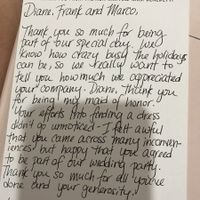 Diane, Frank and Marco,
Thank you so much for being
part of our special day. We
know how crazy busy the holidays
can be so we really want to
tell you how much we appreciated
your company. Diane, thank you
for being my maid of honor.
Your efforts into finding a dress
didn't go unnoticed. I felt awful
that you came across many inconven-
iences but happy that you agreed
to be part of our wedding party.
Thank you so much for all you've
done and your generosity.